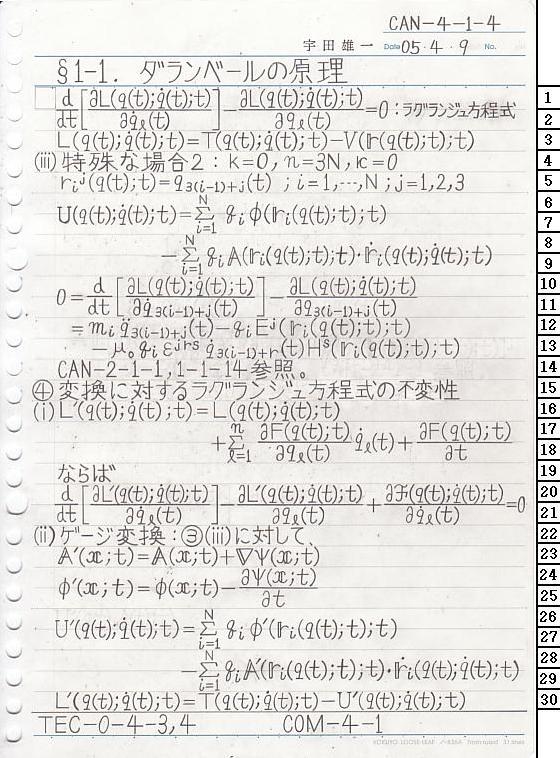 CAN-4-1-4
宇田雄一 Date 05・4・9 No.
§1-1. ダランベールの原理
d/dt[∂L(q(t);q̇(t);t)/∂q̇ℓ(t)]-∂L(q(t);q̇(t);t)/∂qℓ(t)=0:ラグランジュ方程式
L(q(t);q̇(t);t)=T(q(t);q̇(t);t)-V(𝕣(q(t);t);t)
(iii)特殊な場合2:k=0,n=3N,κ=0
rᵢʲ(q(t);t)=q₃₍ᵢ₋₁₎₊ⱼ(t) ;i=1,…,N;j=1,2,3
U(q(t);q̇(t);t)=Σᵢ₌₁ᴺ qᵢφ(𝕣ᵢ(q(t);t);t)
-Σᵢ₌₁ᴺ qᵢ𝔸(𝕣ᵢ(q(t);t);t)・𝕣̇ᵢ(q(t);q̇(t);t)
0=d/dt[∂L(q(t);q̇(t);t)/∂q̇₃₍ᵢ₋₁₎₊ⱼ(t)]-∂L(q(t);q̇(t);t)/∂q₃₍ᵢ₋₁₎₊ⱼ(t)
=mᵢq̈₃₍ᵢ₋₁₎₊ⱼ(t)-qᵢEʲ(𝕣ᵢ(q(t);t);t)
-μ₀qᵢεʲʳˢq̇₃₍ᵢ₋₁₎₊ᵣ(t)Hˢ(𝕣ᵢ(q(t);t);t)
CAN-2-1-1,1-1-14参照。
④変換に対するラグランジュ方程式の不変性
(i)L′(q(t);q̇(t);t)=L(q(t);q̇(t);t)
+Σℓ₌₁ⁿ ∂F(q(t);t)/∂qℓ(t) q̇ℓ(t)+∂F(q(t);t)/∂t
ならば
d/dt[∂L′(q(t);q̇(t);t)/∂q̇ℓ(t)]-∂L′(q(t);q̇(t);t)/∂qℓ(t)+∂ℱ(q(t);q̇(t);t)/∂q̇ℓ(t)=0
(ii)ゲージ変換:③(iii)に対して、
𝔸′(𝕩;t)=𝔸(𝕩;t)+∇Ψ(𝕩;t)
φ′(𝕩;t)=φ(𝕩;t)-∂Ψ(𝕩;t)/∂t
U′(q(t);q̇(t);t)=Σᵢ₌₁ᴺ qᵢφ′(𝕣ᵢ(q(t);t);t)
-Σᵢ₌₁ᴺ qᵢ𝔸′(𝕣ᵢ(q(t);t);t)・𝕣̇ᵢ(q(t);q̇(t);t)
L′(q(t);q̇(t);t)=T(q(t);q̇(t);t)-U′(q(t);q̇(t);t)
TEC-0-4-3,4 COM-4-1
KOKUYO LOOSE-LEAF
1
2
3
4
5
6
7
8
9
10
11
12
13
14
15
16
17
18
19
20
21
22
23
24
25
26
27
28
29
30